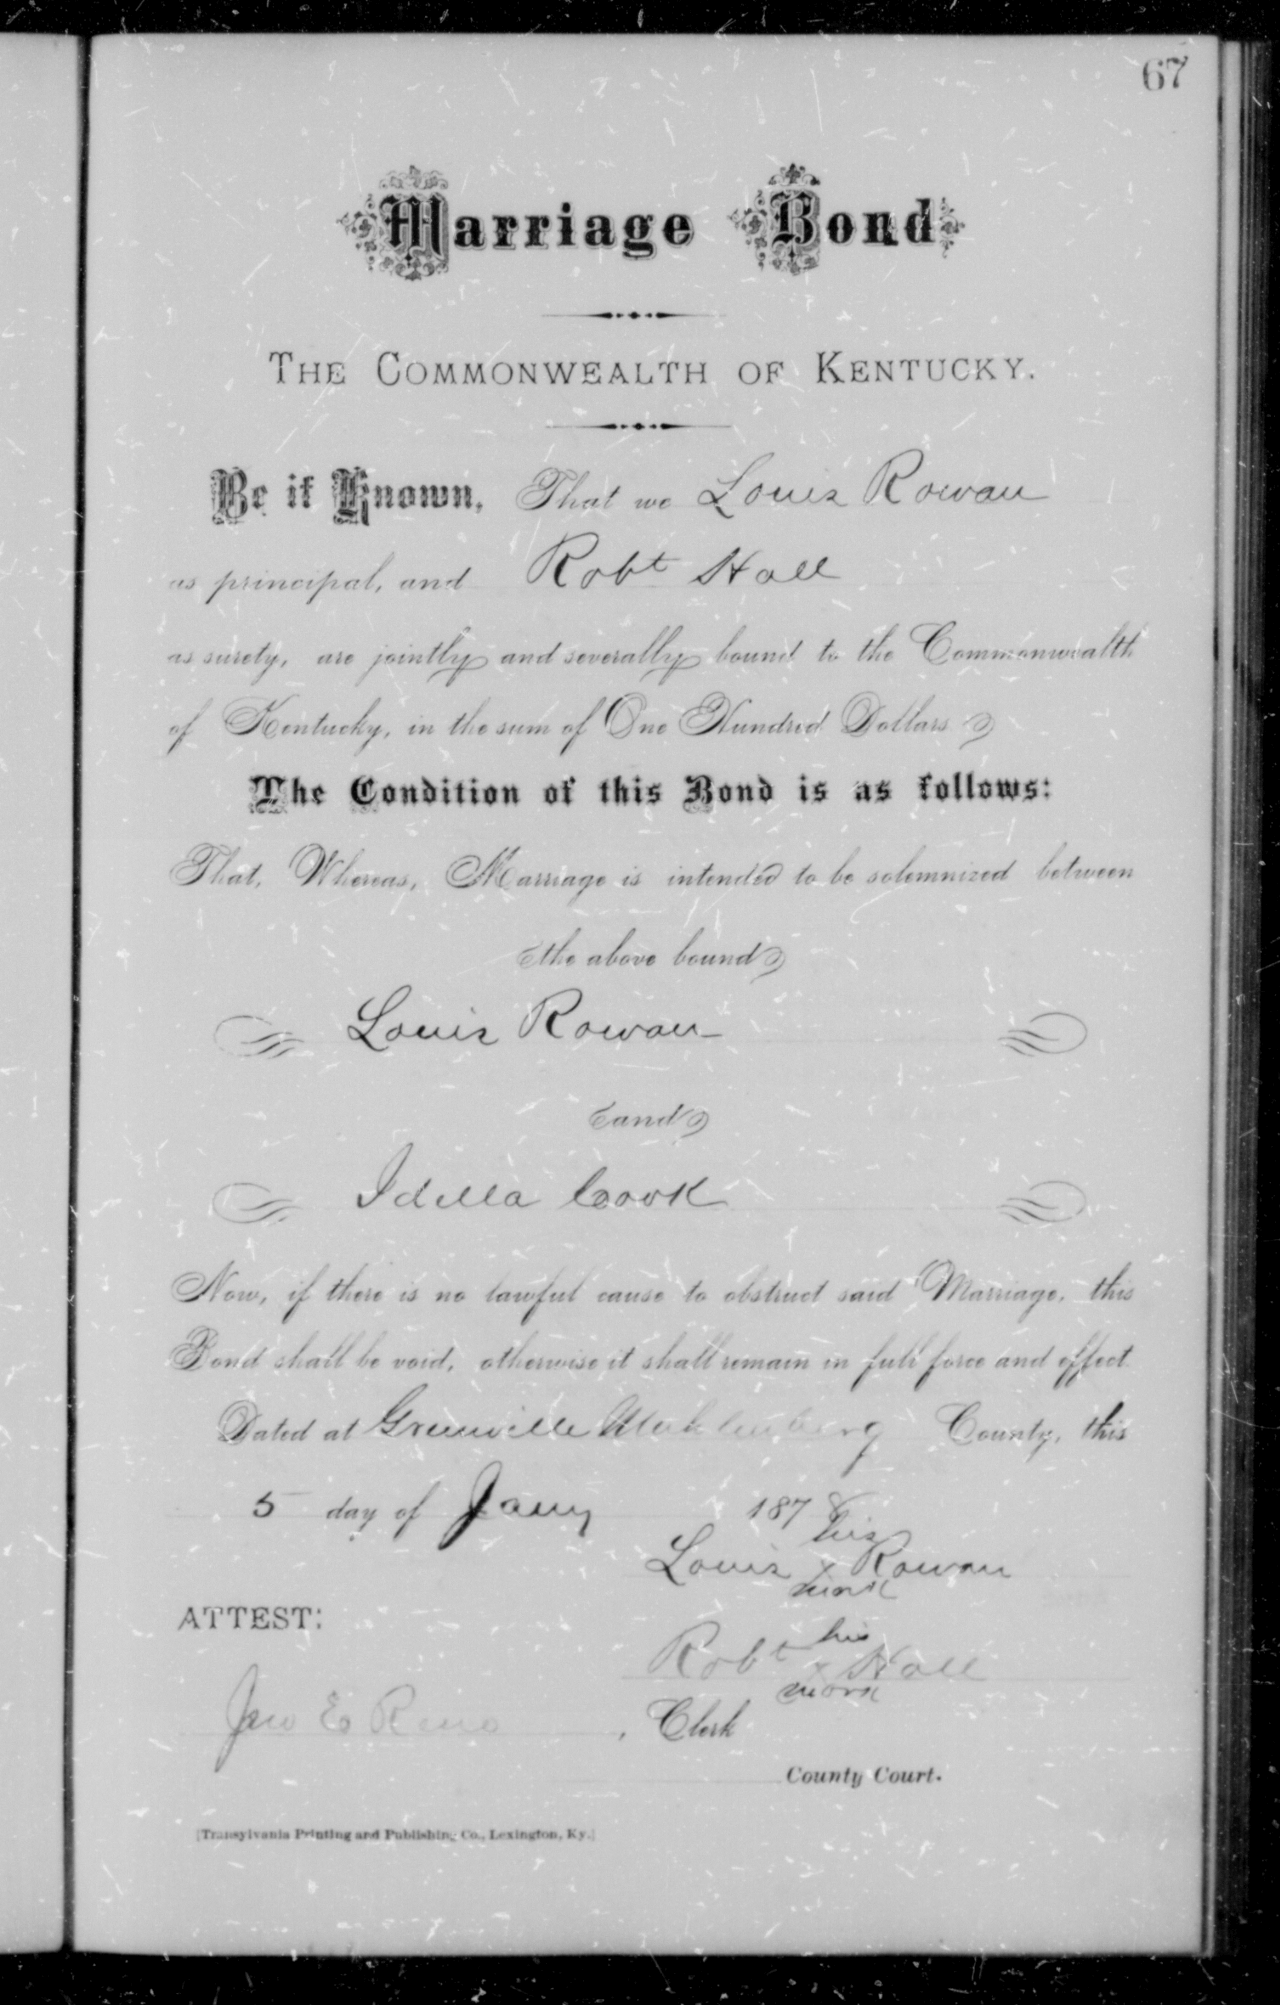 67
Marriage Bond
THE COMMONWEALTH OF KENTUCKY.
Be it Known, That we Louis Rowan
as principal, and Robt Hall
as surety, are jointly and severally bound to the Commonwealth
of Kentucky, in the sum of One Hundred Dollars
The Condition of this Bond is as follows:
That, Whereas, Marriage is intended to be solemnized between
the above bound
Louis Rowan
and
Idella Cook
Now, if there is no lawful cause to obstruct said Marriage, this
Bond shall be void, otherwise it shall remain in full force and effect.
Dated at Greenville Muhlenberg County, this
5 day of Jany 1878
his
Louis x Rowan
mark
ATTEST:
his
Robt x Hall
mark
Jno E Reno, Clerk
County Court.
[Transylvania Printing and Publishing Co., Lexington, Ky.]